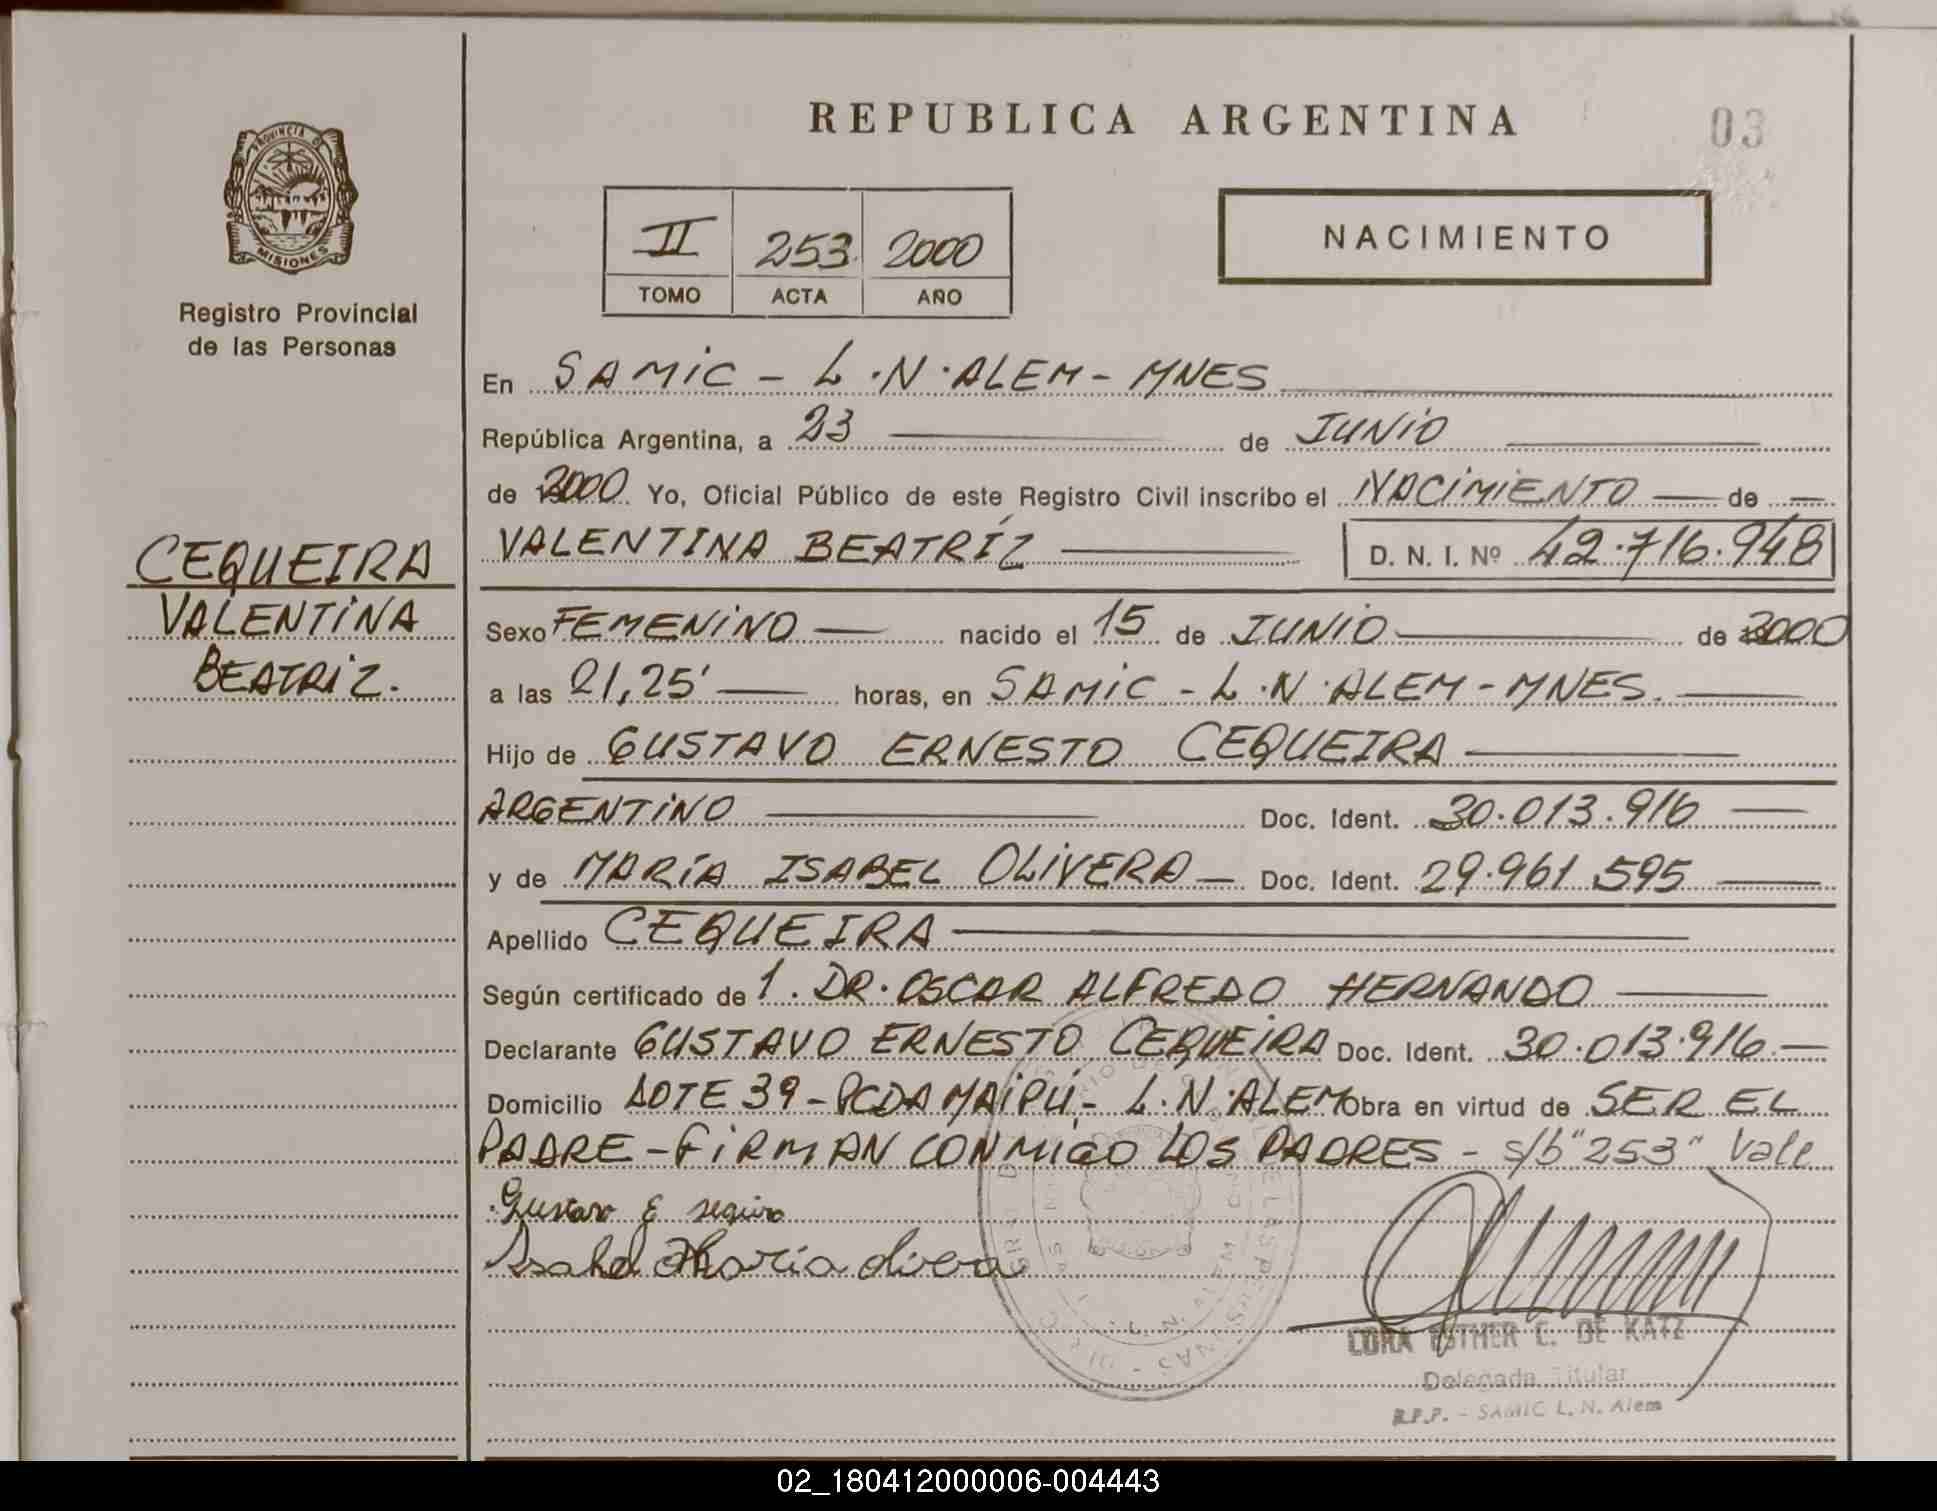 REPUBLICA ARGENTINA
03
PROVINCIA DE
MISIONES
Registro Provincial
de las Personas
II 253 2000
TOMO ACTA AÑO
NACIMIENTO
En SAMIC - L.N. ALEM - MNES
República Argentina, a 23 de JUNIO
de 2000 Yo, Oficial Público de este Registro Civil inscribo el NACIMIENTO de
VALENTINA BEATRÍZ D. N. I. Nº 42.716.948
CEQUEIRA
VALENTINA
BEATRIZ.
Sexo FEMENINO nacido el 15 de JUNIO de 2000
a las 21,25' horas, en SAMIC - L.N. ALEM - MNES.
Hijo de GUSTAVO ERNESTO CEQUEIRA
ARGENTINO Doc. Ident. 30.013.916
y de MARÍA ISABEL OLIVERA Doc. Ident. 29.961.595
Apellido CEQUEIRA
Según certificado de 1. DR. OSCAR ALFREDO HERNANDO
Declarante GUSTAVO ERNESTO CEQUEIRA Doc. Ident. 30.013.916
Domicilio LOTE 39 - PCDA MAIPÚ - L.N. ALEM Obra en virtud de SER EL
PADRE - FIRMAN CONMIGO LOS PADRES - s/b "253" Vale
Gustavo E
Isabel Maria
CORA ESTHER C. DE KATZ
Delegada Titular
R.P.P. - SAMIC L. N. Alem
02_180412000006-004443